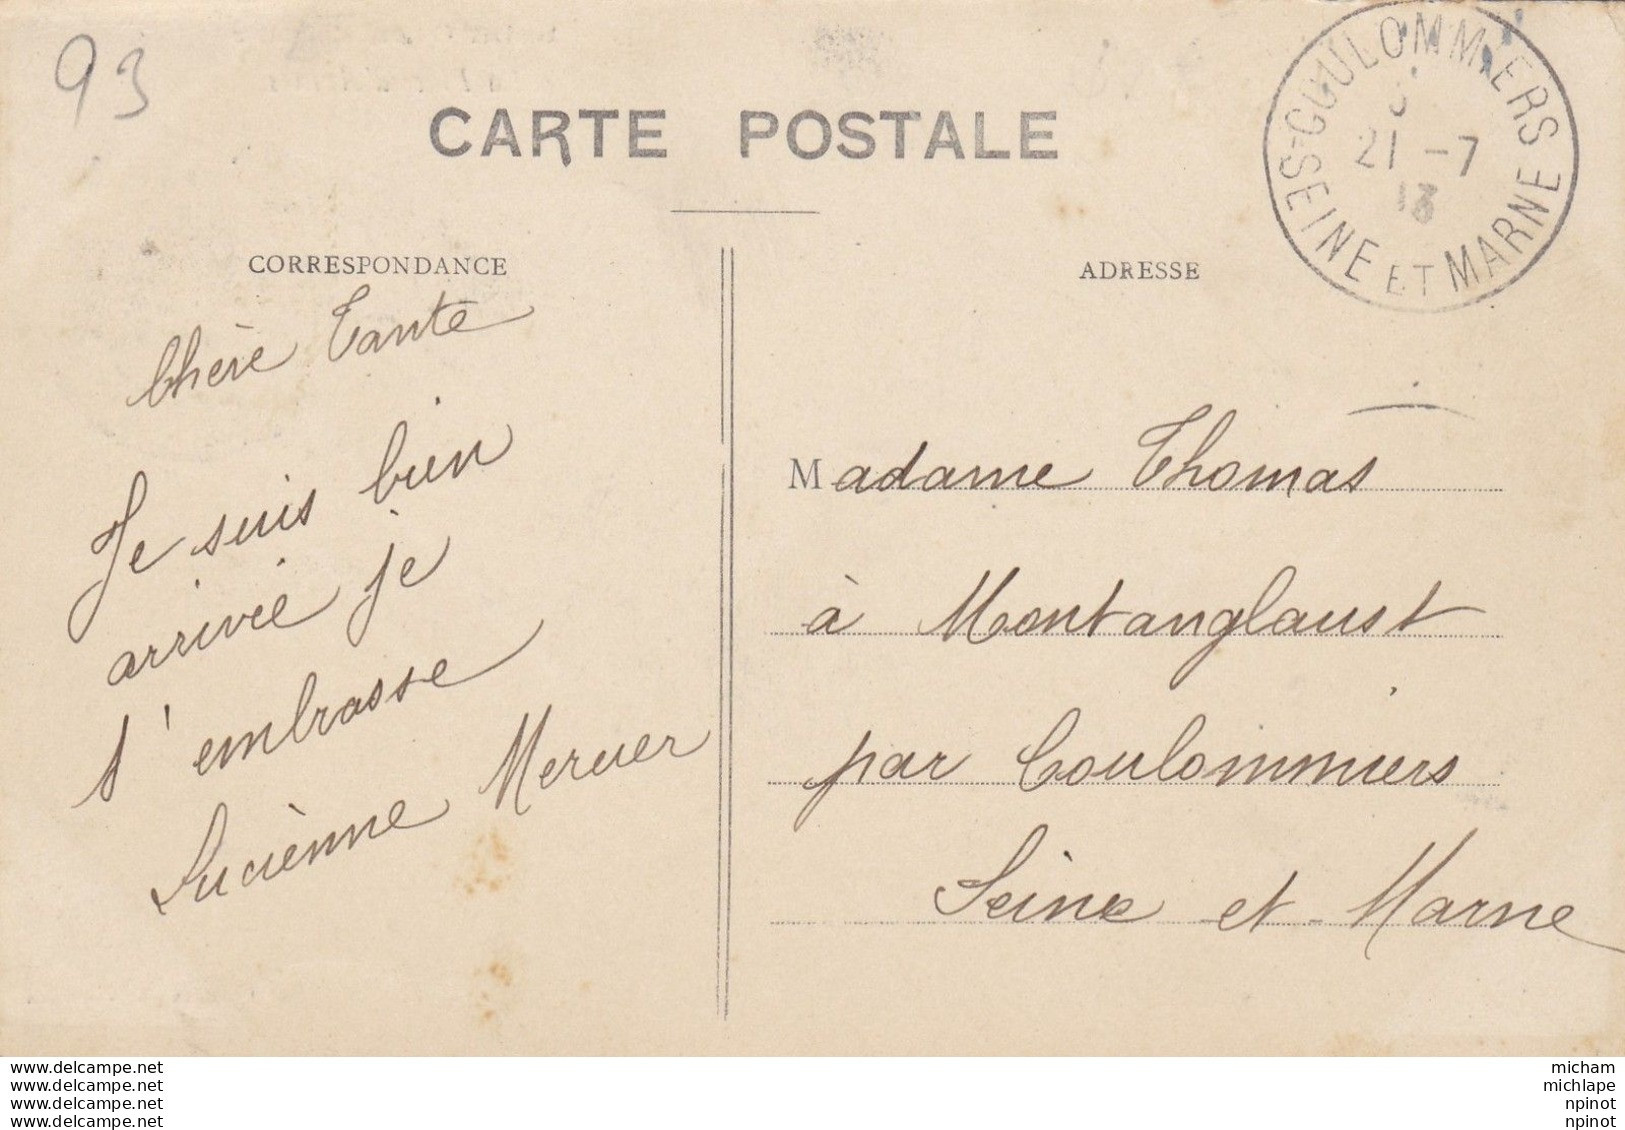 93
CARTE POSTALE
COULOMMIERS
21 -7
13
SEINE ET MARNE
CORRESPONDANCE
Chère Tante
Je suis bien
arrivée je
t'embrasse
Lucienne Mercier
ADRESSE
Madame Thomas
à Montanglaust
par Coulommiers
Seine et-Marne
www.delcampe.net
www.delcampe.net
www.delcampe.net
www.delcampe.net
micham
michlape
npinot
npinot